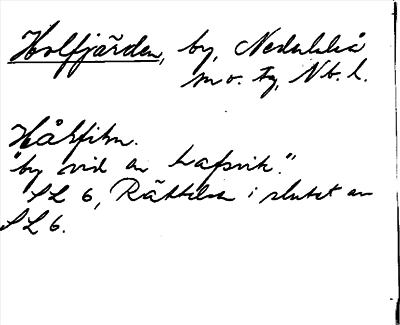 Holfjärden, by, Nederluleå
sn o. tg, Nb. l.
Hålfjärn.
"by vid en hafsvik."
SL 6, Rättelse i slutet av
SL 6.